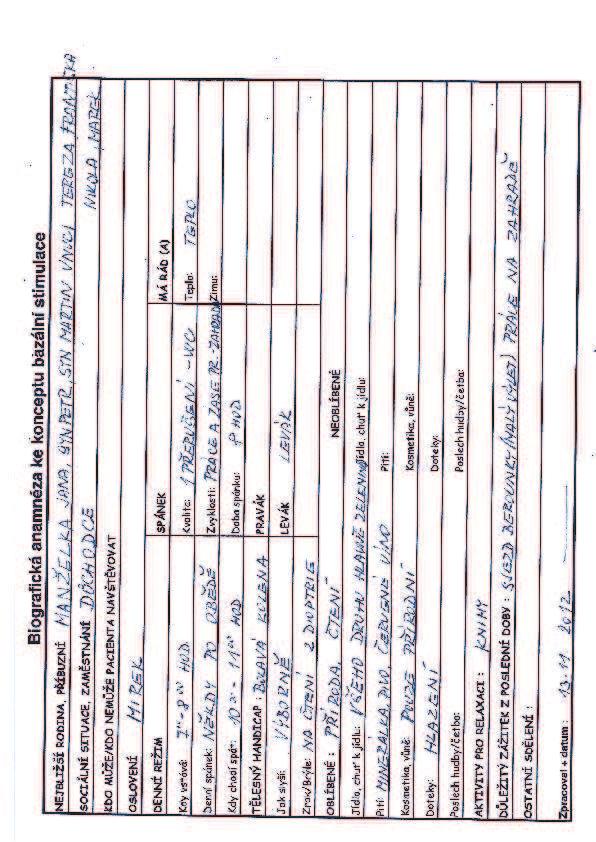 Biografická anamnéza ke konceptu bazální stimulace
NEJBLIŽŠÍ RODINA, PŘÍBUZNÍ MANŽELKA JANA, SYN PETR, SYN MARTIN VNUCI TEREZA FRANTIŠKA
SOCIÁLNÍ SITUACE, ZAMĚSTNÁNÍ DŮCHODCE NIKOLA, MAREK
KDO MŮŽE/KDO NEMŮŽE PACIENTA NAVŠTĚVOVAT
OSLOVENÍ MIREK
DENNÍ REŽIM SPÁNEK MÁ RÁD (A)
Kdy vstává: 7°°-8°° HOD Kvalita: 1 PŘERUŠENÍ - WC Teplo: TEPLO
Denní spánek: NĚKDY PO OBĚDĚ Zvyklosti: PRÁCE A ZASE PR.-ZAHRADA Zimu:
Kdy chodí spát: 10°° - 11°° HOD Doba spánku: 9 HOD
TĚLESNÝ HANDICAP: BOLAVÁ KOLENA PRAVÁK
Jak slyší: VÝBORNĚ LEVÁK LEVÁK
Zrak/Brýle: NA ČTENÍ 2 DIOPTRIE
OBLÍBENÉ : PŘÍRODA, ČTENÍ NEOBLÍBENÉ
Jídlo, chuť k jídlu: VŠEHO DRUHU HLAVNĚ ZELENINU Jídlo, chuť k jídlu:
Pití: MINERÁLKA, PIVO, ČERVENÉ VÍNO Pití:
Kosmetika, vůně: POUZE PŘÍRODNÍ Kosmetika, vůně:
Doteky: HLAZENÍ Doteky:
Poslech hudby/četba: Poslech hudby/četba:
AKTIVITY PRO RELAXACI : KNIHY
DŮLEŽITÝ ZÁŽITEK Z POSLEDNÍ DOBY : SJEZD BEROUNKY (MALÝ VÝLET) PRÁCE NA ZAHRADĚ
OSTATNÍ SDĚLENÍ :
Zpracoval + datum : 13.11.2012